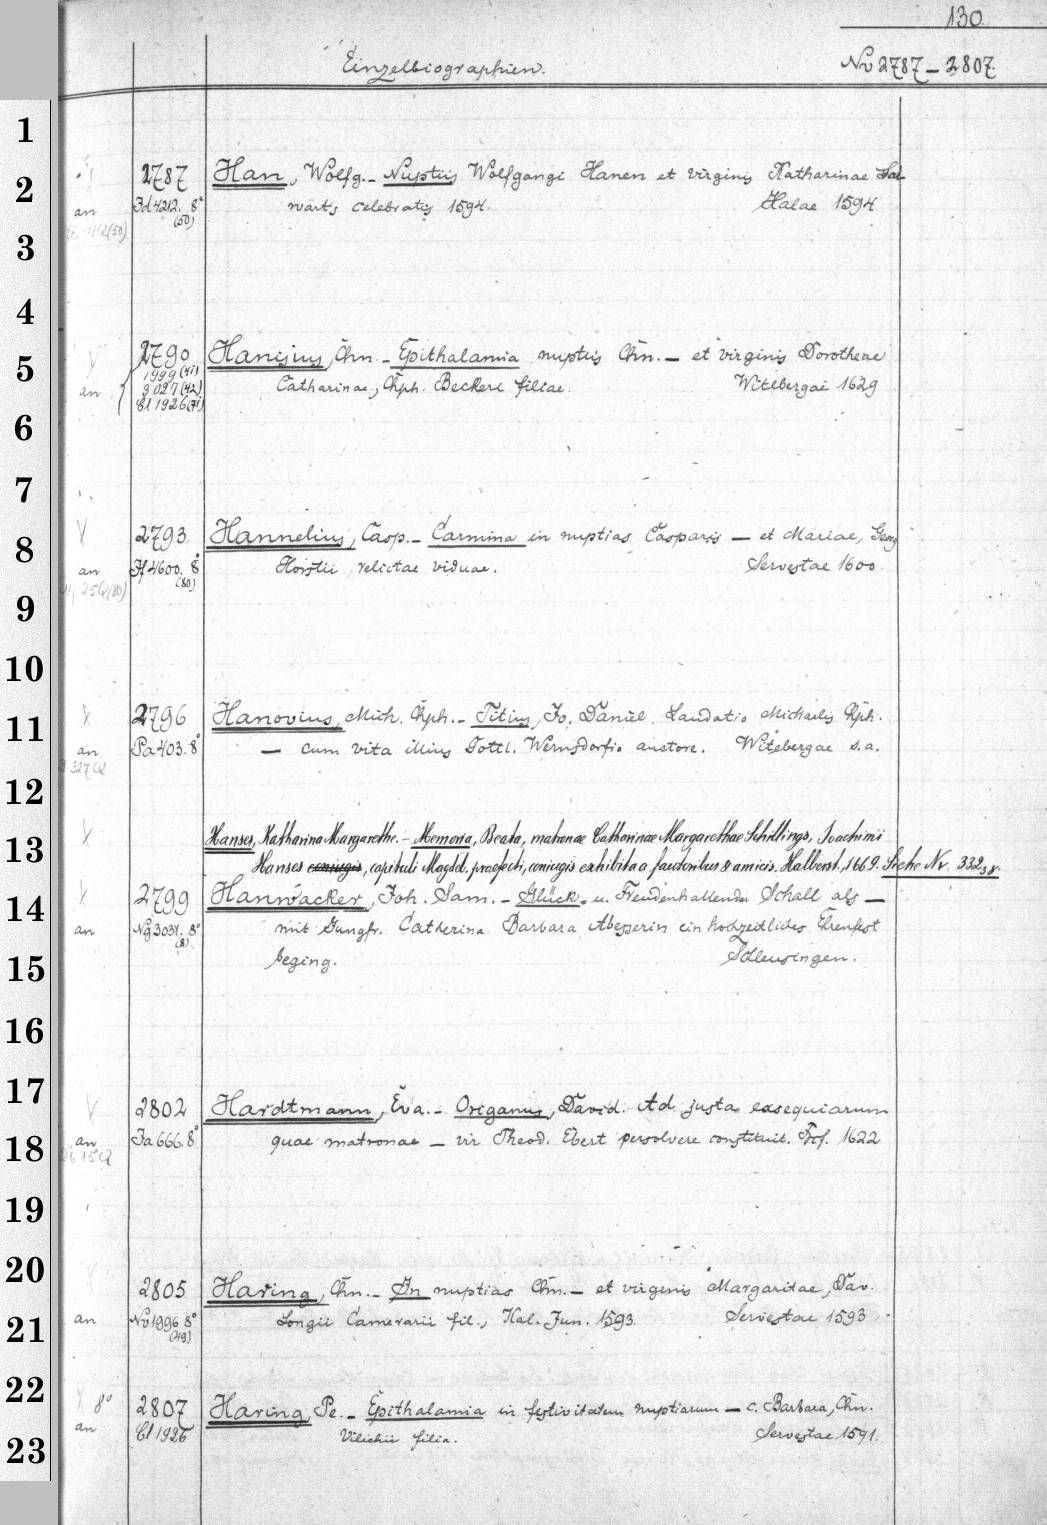 130.
Einzelbiographien. Nv 2787 – 2807.
1
2787 Han, Wolfg. – Nuptiis Wolfgangi Hanen et virginis Katharinae
2
an 4212. 8° warts celebratis 1594. Halae 1594
(50)
3
4
2790 Hanisius, Chn. – Epithalamia nuptiis Chn. – et virginis Dorotheae
5
1999 (41)
an 3027 (42) Catharinae, Chph. Beckeri filiae. Witebergae 1629
Cl 1926 (71)
6
7
2793 Hannelius, Casp. – Carmina in nuptias Casparis – et Mariae, Georg
8
an 4600. 8° Horstii relictae viduae. Servestae 1600.
(80)
9
10
2796 Hanovius, Mich. Chph. – Titius, Jo. Daniel. Laudatio Michaelis Chph.
11
an Pa 403. 8° — cum vita illius Gottl. Wernsdorfio auctore. Witebergae s. a.
12
Hanses, Katharina Margarethe. – Memoria, Beata, matronae Catharinae Margarethae Schillings, Joachimi
13
Hanses coniugis, capituli Magdeb. praefecti, coniugis exhibita a fautoribus & amicis. Halberst. 1669. Siehe Nr. 332,58.
2799 Hanwacker, Joh. Sam. – Glück- u. Freudenhallender Schall als —
14
an Ng 3031. 8° mit Jungfr. Catherina Barbara Abesserin ein hochzeitliches Ehrenfest
(8)
15
beging. Schleusingen.
16
17
2802 Hardtmann, Eva. – Origanus, David. Ad justa exsequiarum
an 666. 8° quae matronae — vir Theod. Ebert persolvere constituit. Frcf. 1622
18
19
20
2805 Haring, Chn. – In nuptias Chn. – et virginis Margaritae, Dav.
21
an Nv 1996 8° Longii Camerarii fil., Kal. Jun. 1593. Servestae 1593
(49)
22
8° 2807 Haring, Pe. – Epithalamia in festivitatem nuptiarum – c. Barbara, Chn.
an Cl 1926 Vilichii filia. Servestae 1591.
23